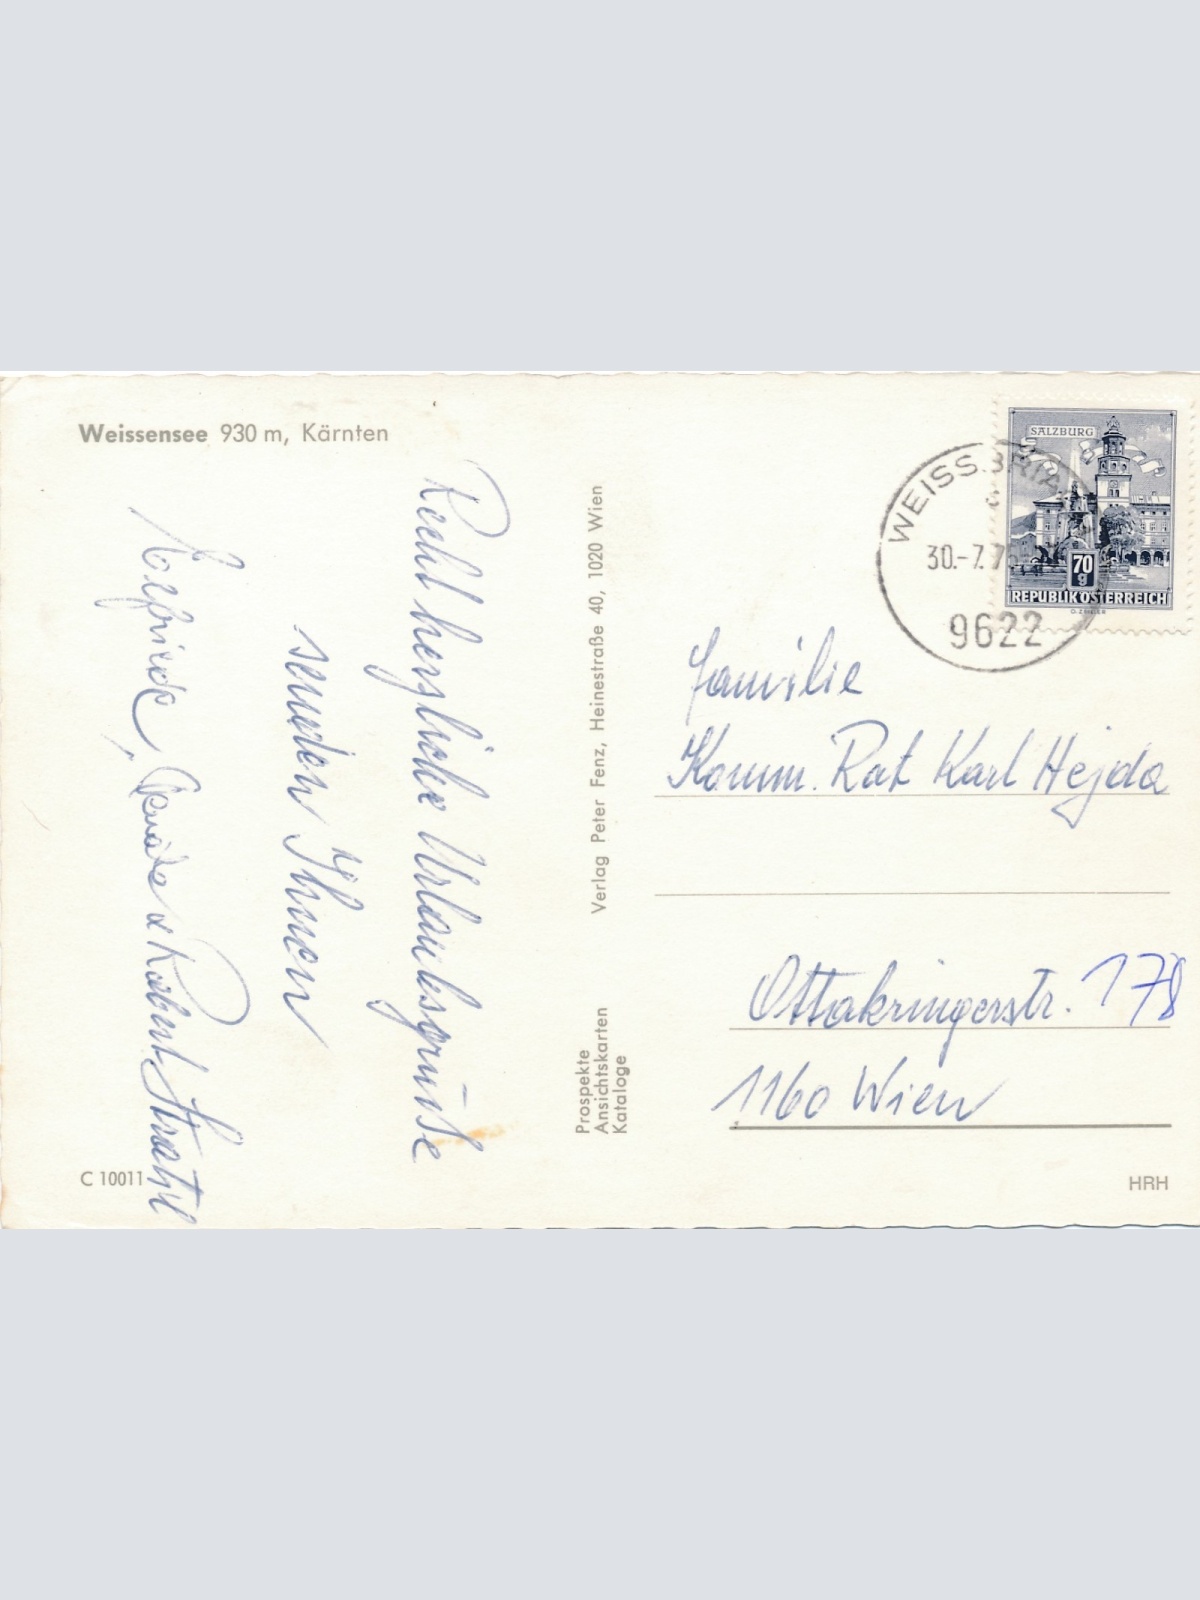 Weissensee 930 m, Kärnten
Recht herzliche Urlaubsgrüße
senden Ihnen
Elfriede, Renate & Robert Strahl
C 10011
Verlag Peter Fenz, Heinestraße 40, 1020 Wien
Prospekte
Ansichtskarten
Kataloge
SALZBURG
70
g
REPUBLIK ÖSTERREICH
WEISSBRIA
30.-7.7
9622
Familie
Komm. Rat Karl Hejda
Ottakringerstr. 178
1160 Wien
HRH